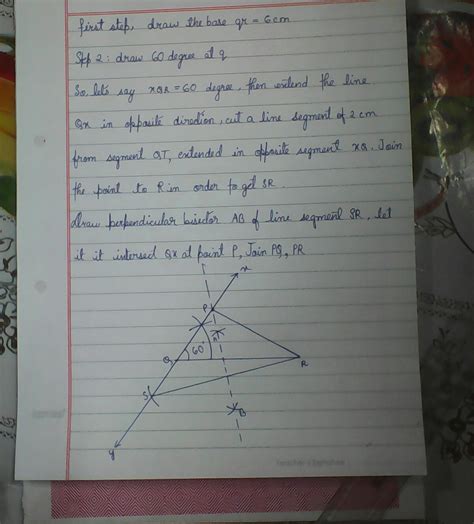 first step, draw the base qr = 6cm
Step 2: draw 60 degree at q
So, lets say XQR = 60 degree, then extend the line
QX in opposite direction, cut a line segment of 2 cm
from segment QT, extended in opposite segment XQ. Join
the point to R in order to get SR.
Draw perpendicular bisector AB of line segment SR, let
it it intersect QX at point P, Join PQ, PR
x
P
Q
60°
R
S
B
y